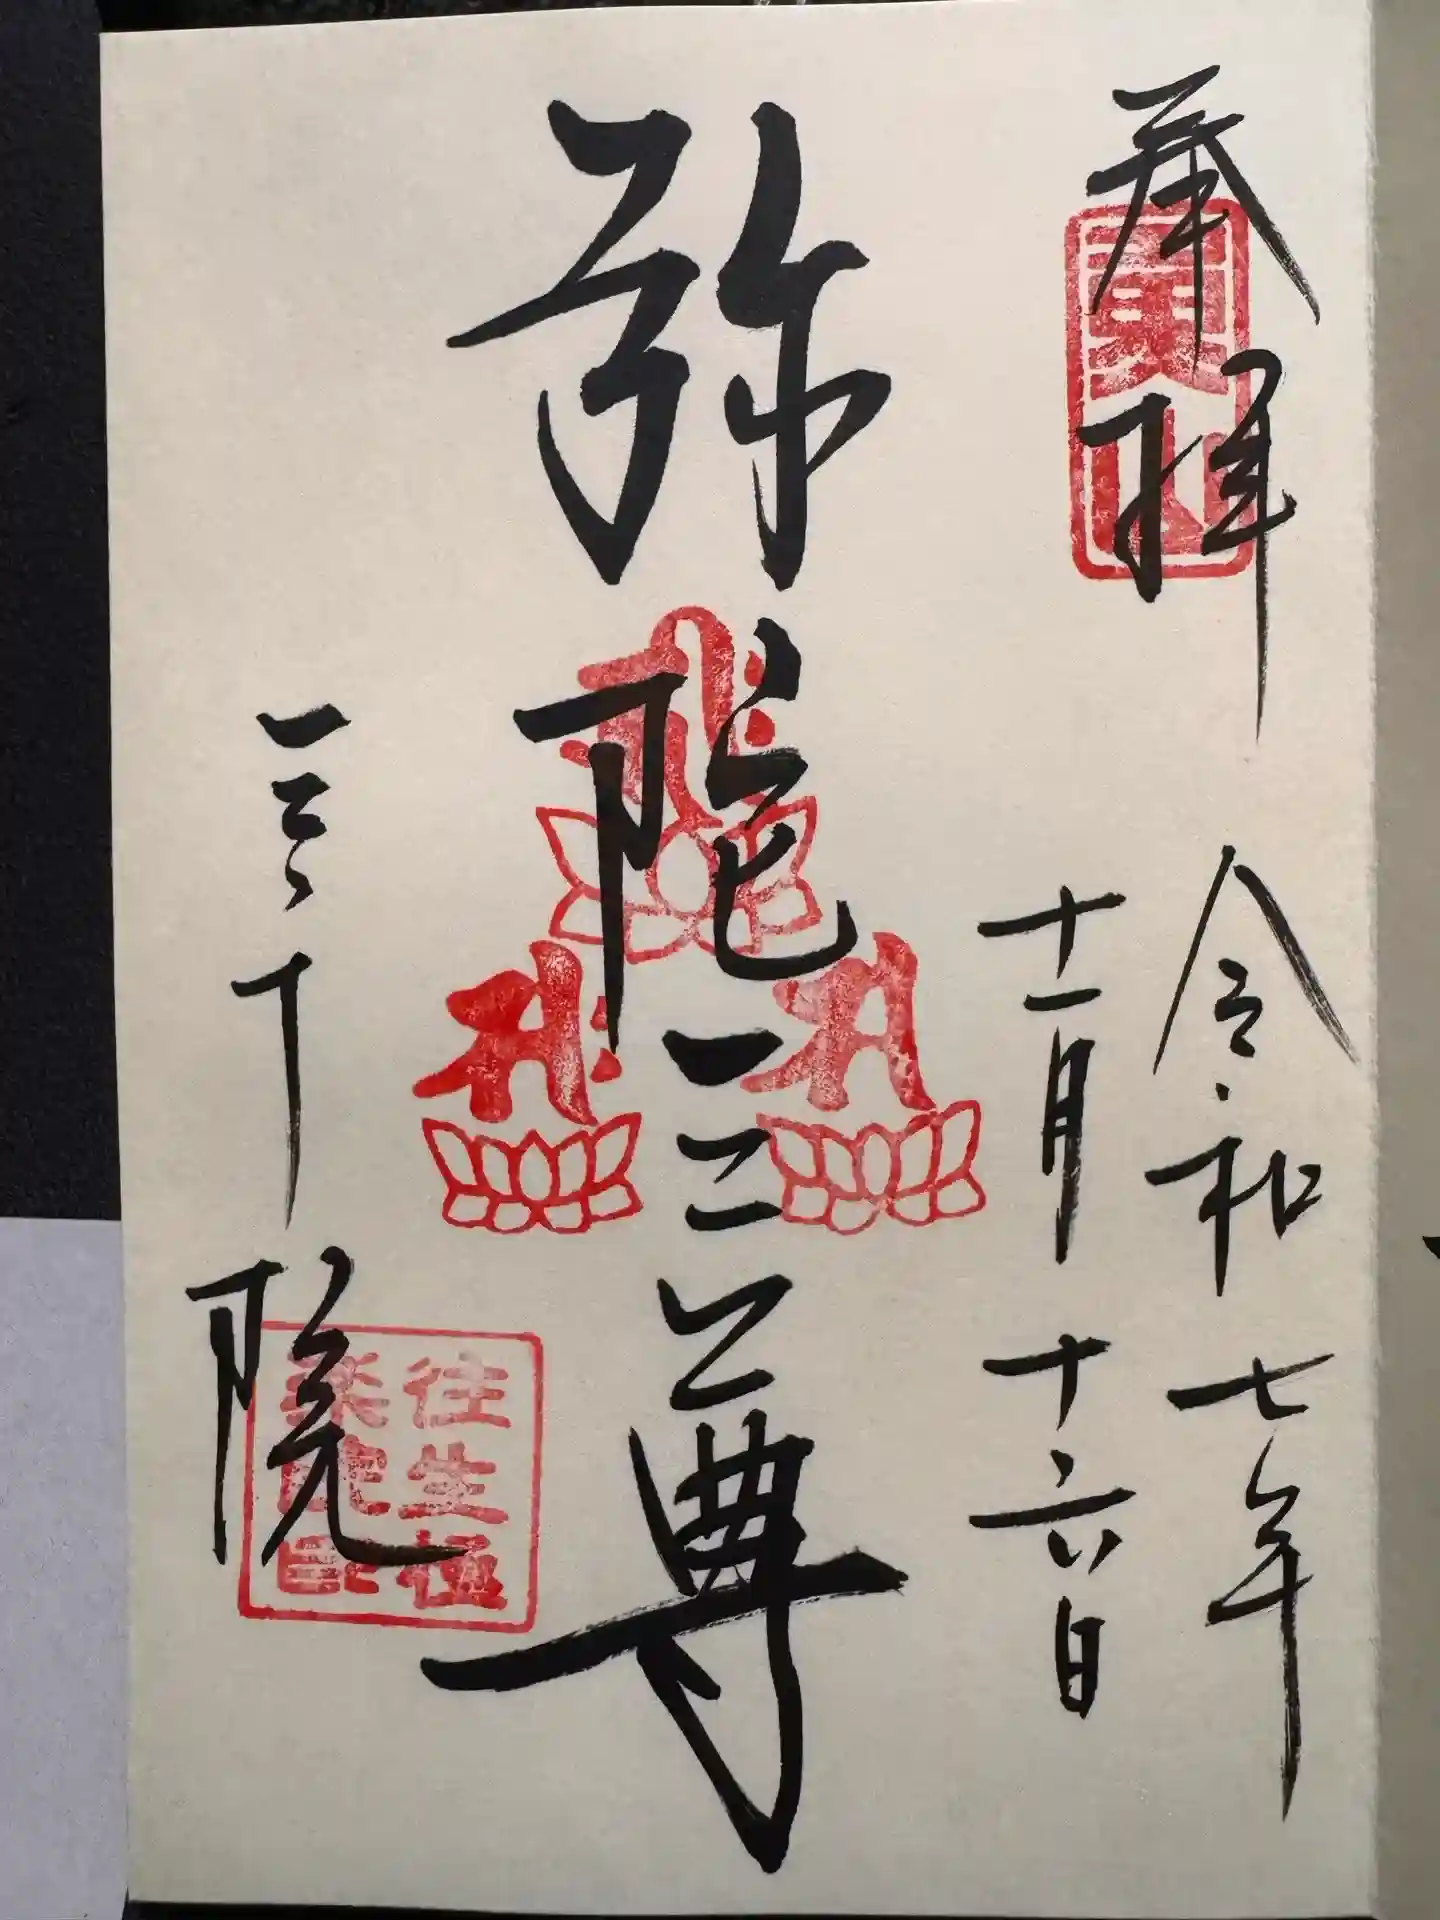 奉拝
令和七年
十一月十六日
弥陀三尊
三千院
往生極
楽院印